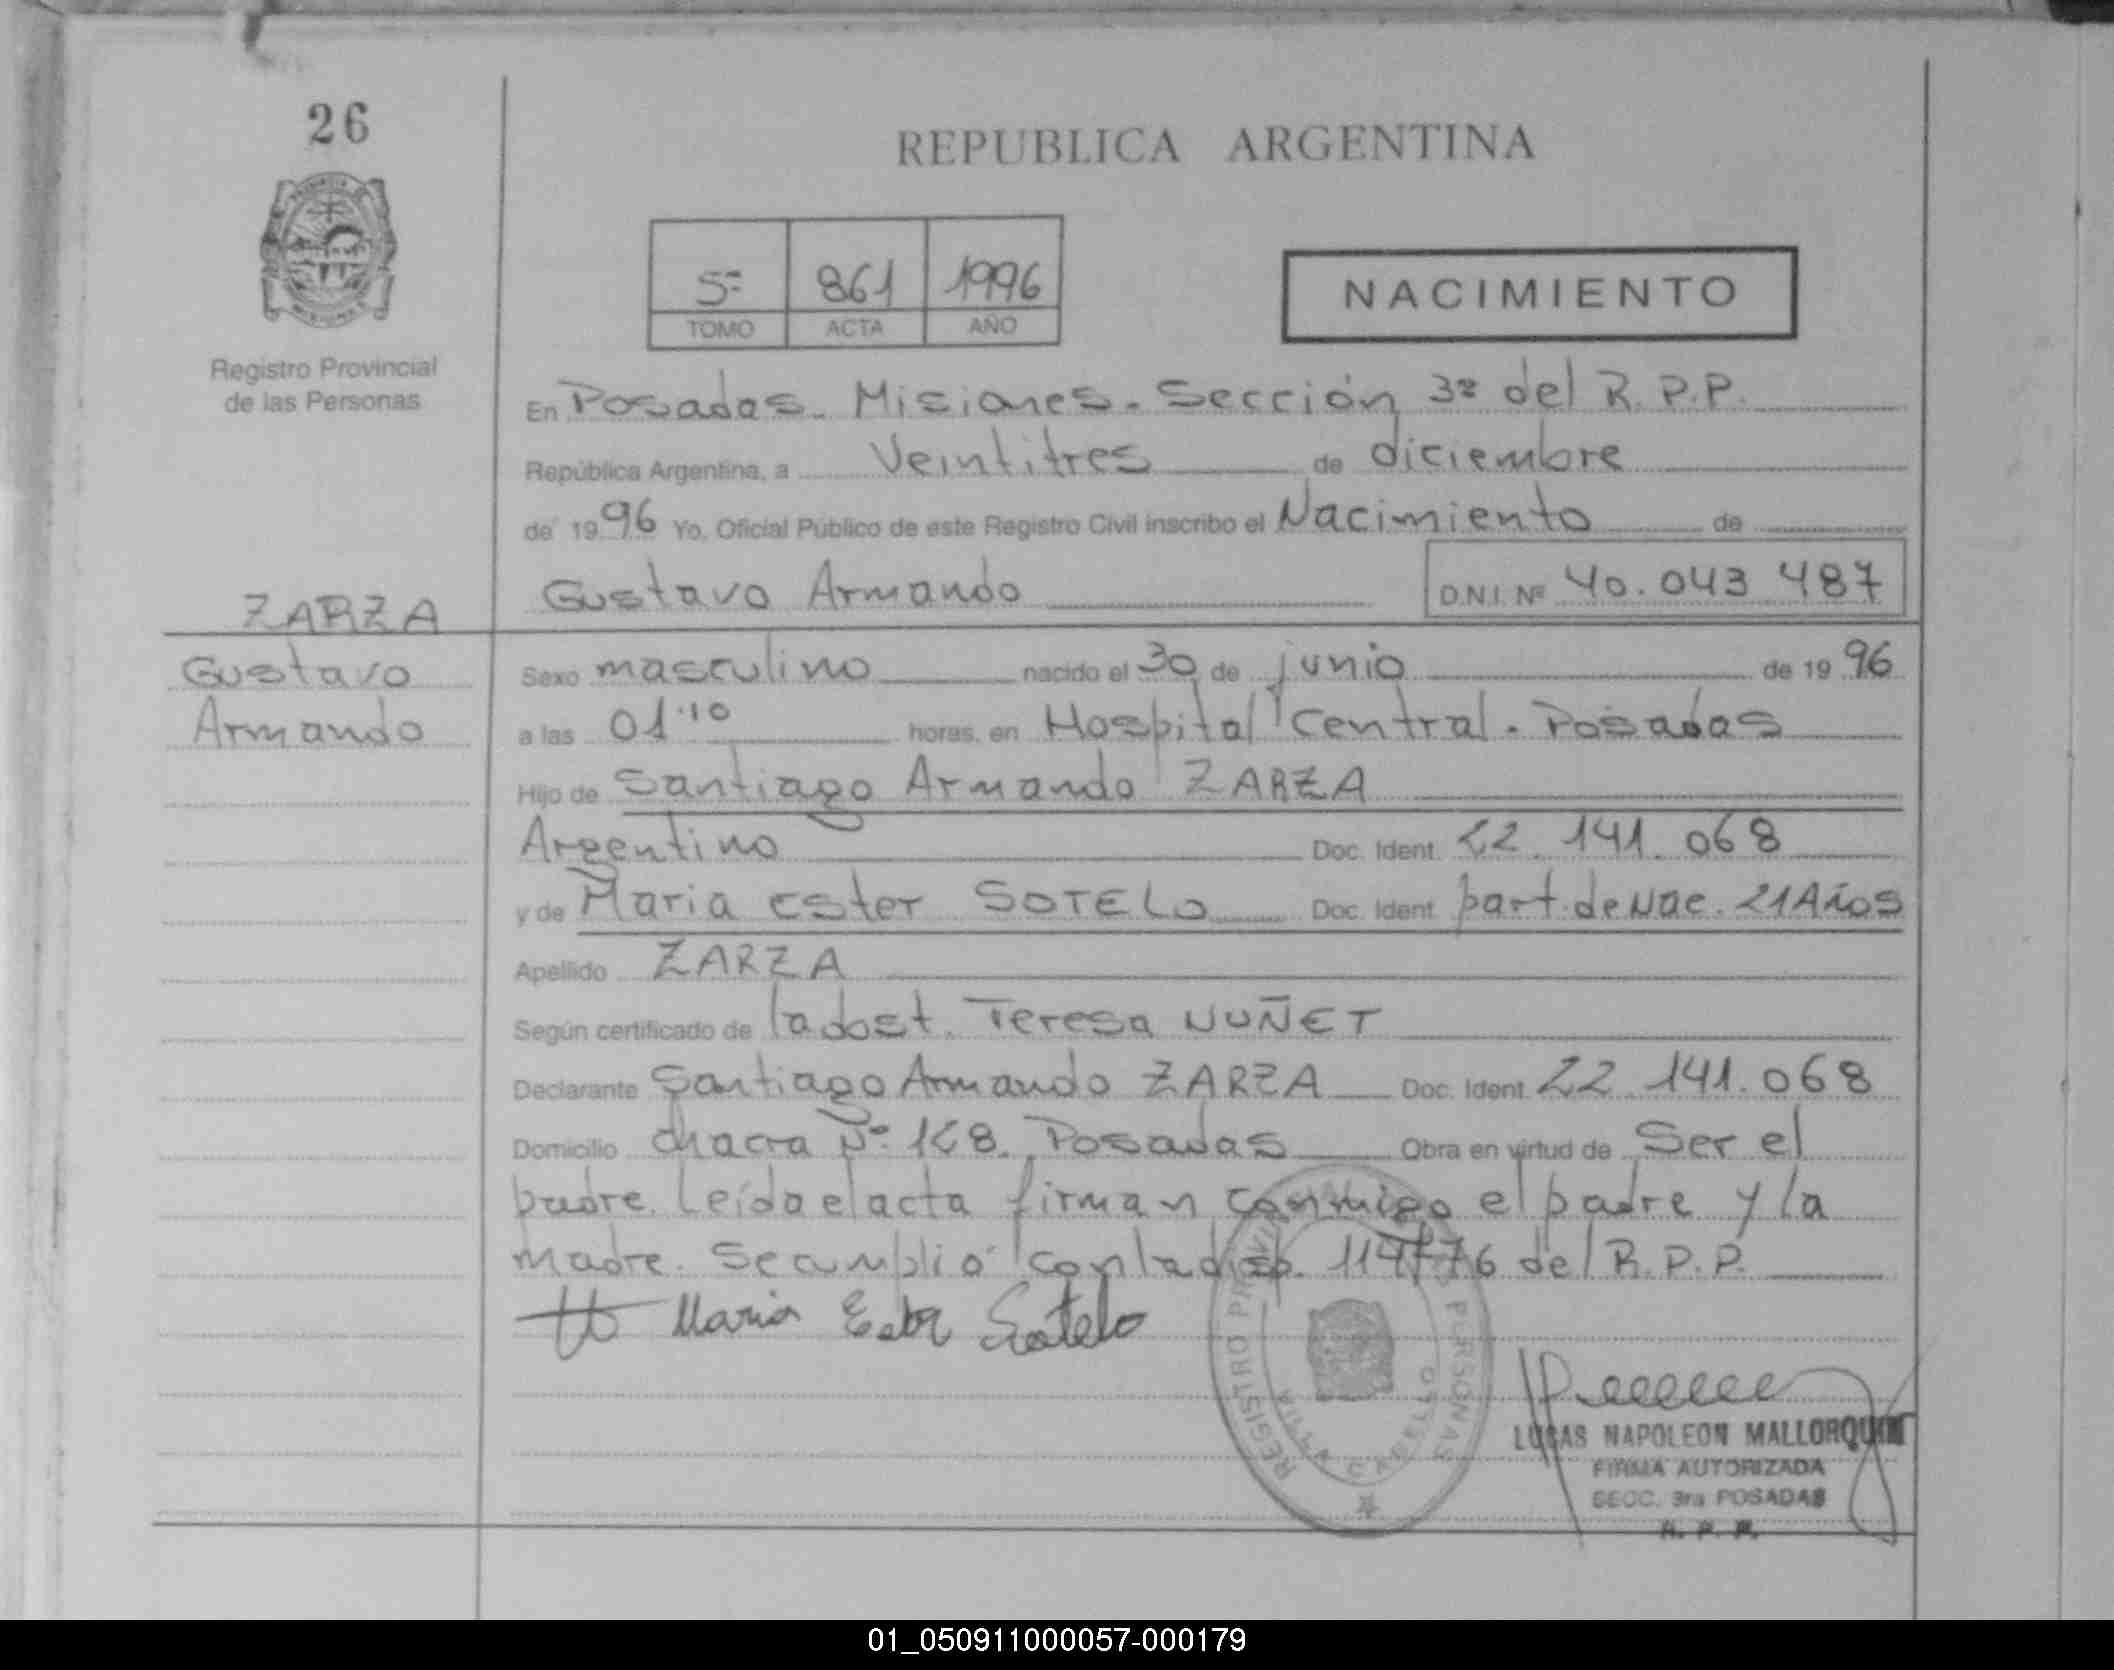 26
REPUBLICA ARGENTINA
5º 861 1996
TOMO ACTA AÑO
NACIMIENTO
Registro Provincial
de las Personas
En Posadas. Misiones. Sección 3ª del R.P.P.
República Argentina, a Veintitres de diciembre
de 19 96 Yo, Oficial Público de este Registro Civil inscribo el Nacimiento de
Gustavo Armando D.N.I. Nº 40.043 487
ZARZA
Gustavo
Armando
Sexo masculino nacido el 30 de junio de 19 96
a las 01.10 horas, en Hospital Central. Posadas
Hijo de Santiago Armando ZARZA
Argentino Doc. Ident. 22.141.068
y de Maria Ester SOTELO Doc. Ident. part. de Nac. 21 Años
Apellido ZARZA
Según certificado de la obst. Teresa NUÑET
Declarante Santiago Armando ZARZA Doc. Ident. 22.141.068
Domicilio chacra Nº 168. Posadas Obra en virtud de Ser el
padre. Leída el acta firman conmigo el padre y la
madre. Se cumplió con la disp. 114/76 del R.P.P.
Maria Ester Sotelo
REGISTRO PROVINCIAL PERSONAS
VILLA CABELLO
LUCAS NAPOLEON MALLORQUIN
FIRMA AUTORIZADA
SECC. 3ra POSADAS
R. P. P.
01_050911000057-000179